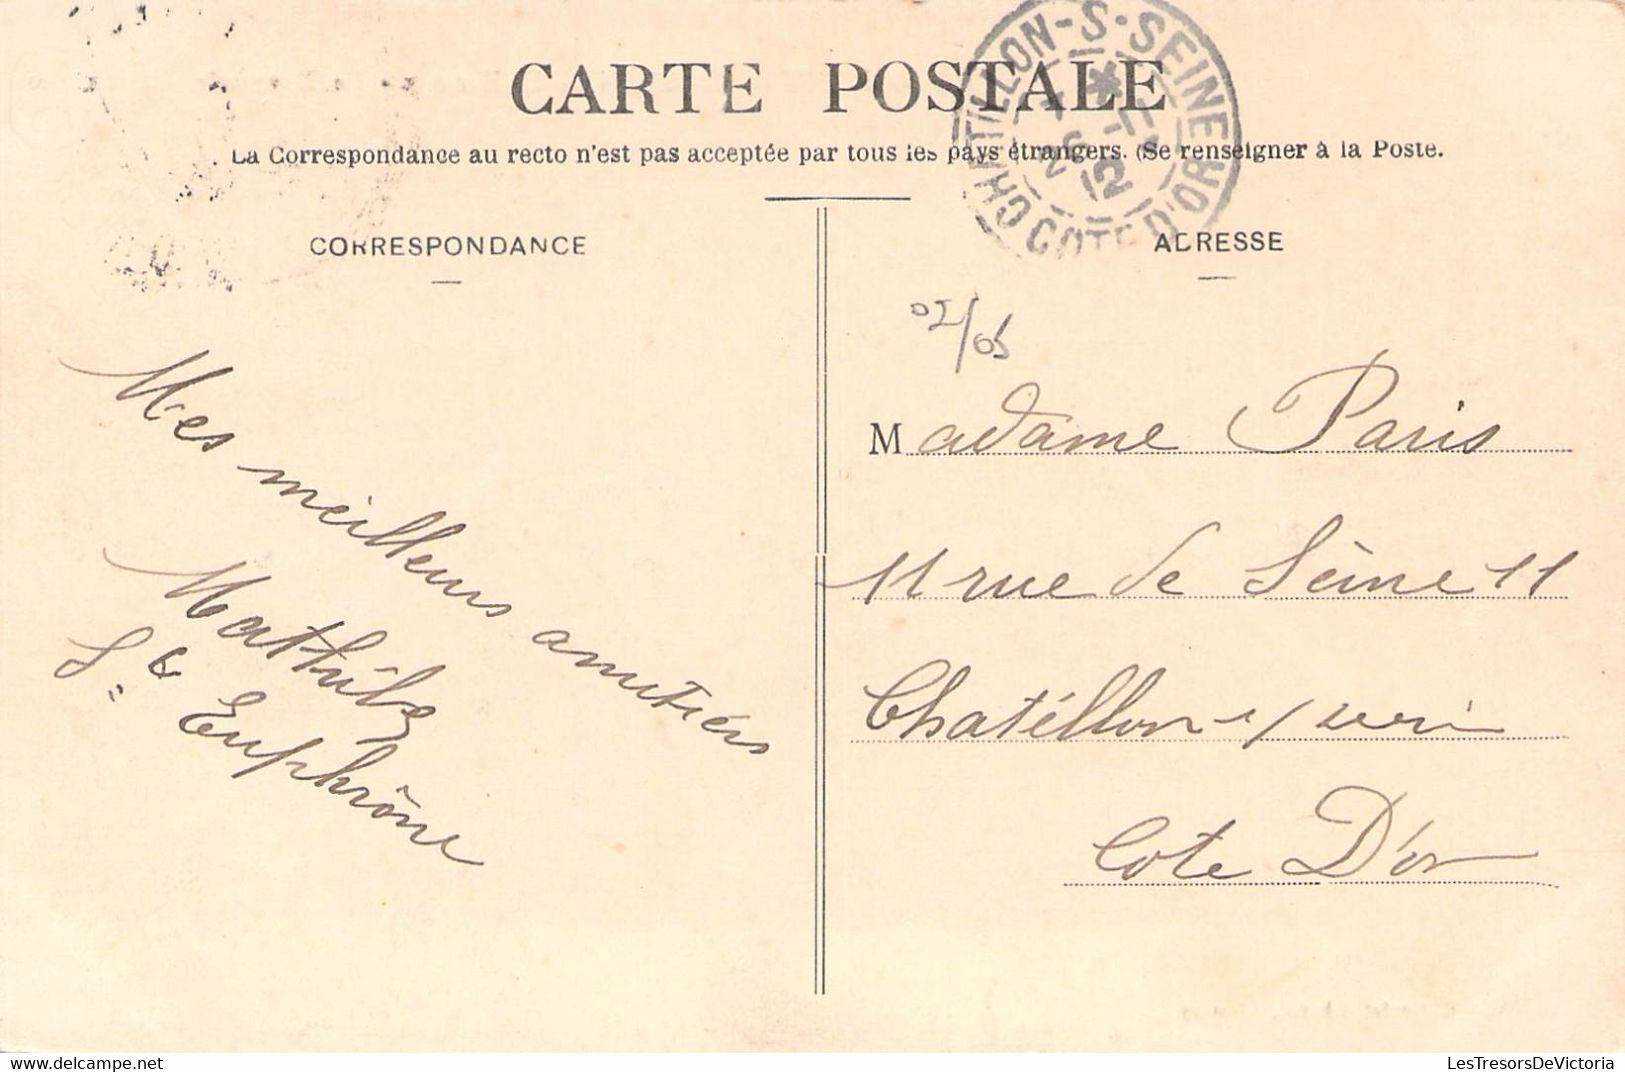 CARTE POSTALE
La Correspondance au recto n'est pas acceptée par tous les pays étrangers. (Se renseigner à la Poste.
CHATILLON-S-SEINE
COTE D'OR
CORRESPONDANCE
ADRESSE
Mes meilleurs amitiés
Mathilde
Ste Euphrône
Madame Paris
11 rue de Seine 11
Chatillon s/
Cote D'or
LesTresorsDeVictoria